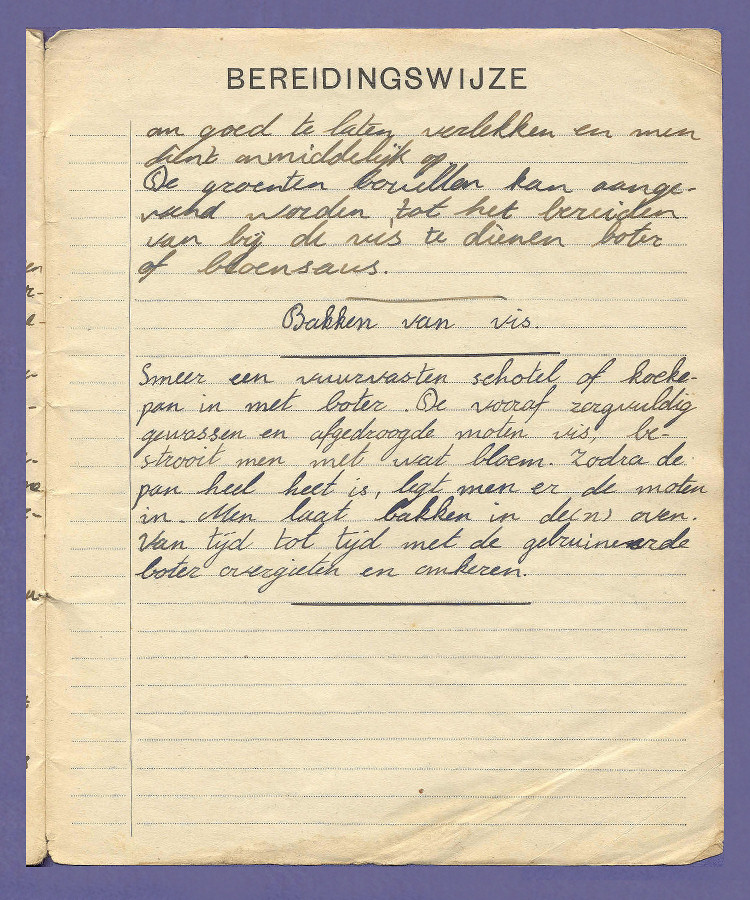 BEREIDINGSWIJZE
om goed te laten verlekken en men
dient onmiddelijk op.
De groenten bouillon kan aange-
wend worden tot het bereiden
van bij de vis te dienen boter
of bloemsaus.
Bakken van vis.
Smeer een vuurvasten schotel of koeke-
pan in met boter. De vooraf zorgvuldig
gewassen en afgedroogde moten vis, be-
strooit men met wat bloem. Zodra de
pan heel heet is, legt men er de moten
in. Men laat bakken in de(n) oven.
Van tijd tot tijd met de gebruineerde
boter overgieten en omkeren.